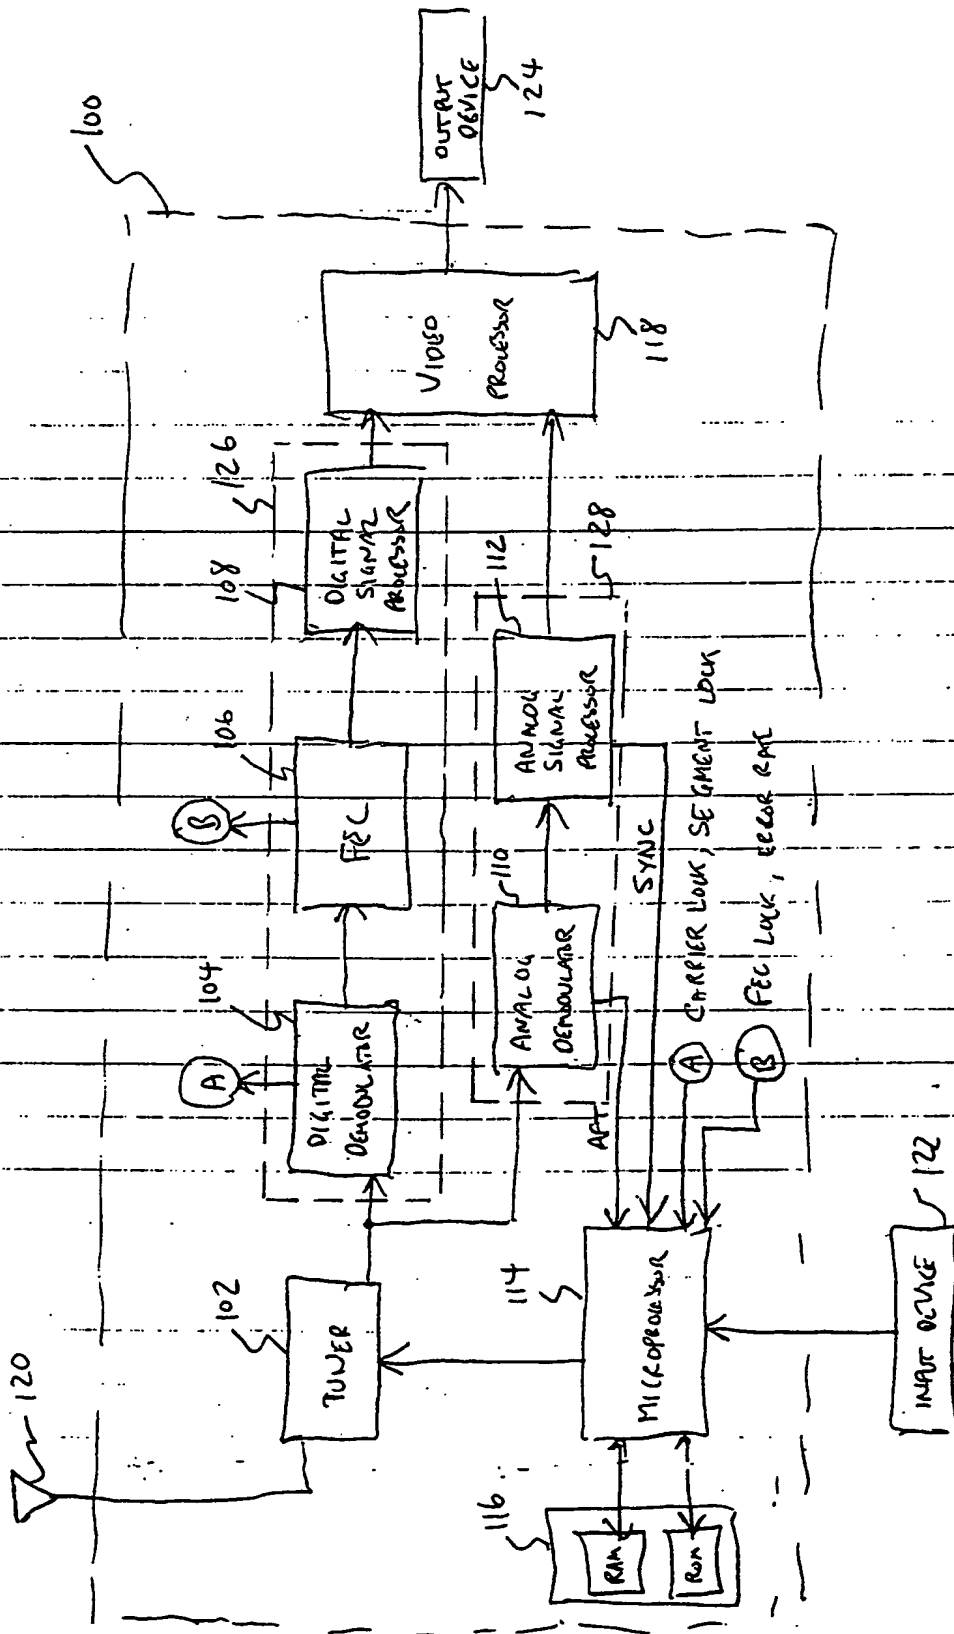 100
120
102
TUNER
A
104
DIGITAL
DEMODULATOR
B
106
FEC
108
126
DIGITAL
SIGNAL
PROCESSOR
VIDEO
PROCESSOR
118
OUTPUT
DEVICE
124
110
ANALOG
DEMODULATOR
112
ANALOG
SIGNAL
PROCESSOR
128
AFT
SYNC
A CARRIER LOCK, SEGMENT LOCK
B FEC LOCK, ERROR RATE
114
MICROPROCESSOR
116
RAM
ROM
INPUT DEVICE
122